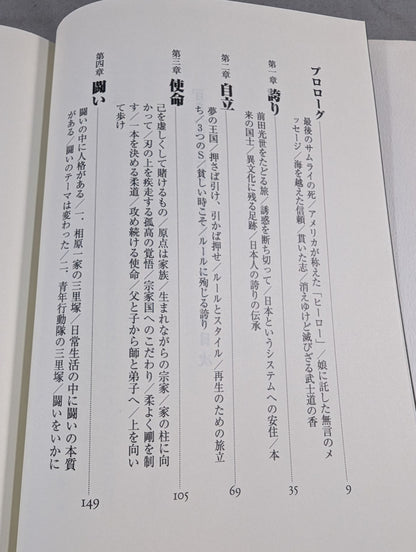 プロローグ
最後のサムライの死／アメリカが称えた「ヒーロー」／娘に託した無言のメ
ッセージ／海を越えた信頼／貫いた志／消えゆけど滅びざる武士道の香
9
第一章
誇り
前田光世をたどる旅／誘惑を断ち切って／日本というシステムへの安住／本
来の国士／異文化に残る足跡／日本人の誇りの伝承
35
第二章
自立
夢の王国／押さば引け、引かば押せ／ルールとスタイル／再生のための旅立
ち／3つのS／貧しい時こそ／ルールに殉じる誇り
69
第三章
使命
己を虚しくして賭けるもの／原点は家族／生まれながらの宗家／家の柱に向
かって／刃の上を疾走する孤高の覚悟／宗家国へのこだわり／柔よく剛を制
す／一本を決める柔道／攻め続ける使命／父と子から師と弟子へ／上を向い
て歩け
105
第四章
闘い
闘いの中に人格がある／一、相原一家の三里塚／日常生活の中に闘いの本質
がある／闘いのテーマは変わった／二、青年行動隊の三里塚／闘いをいかに
149